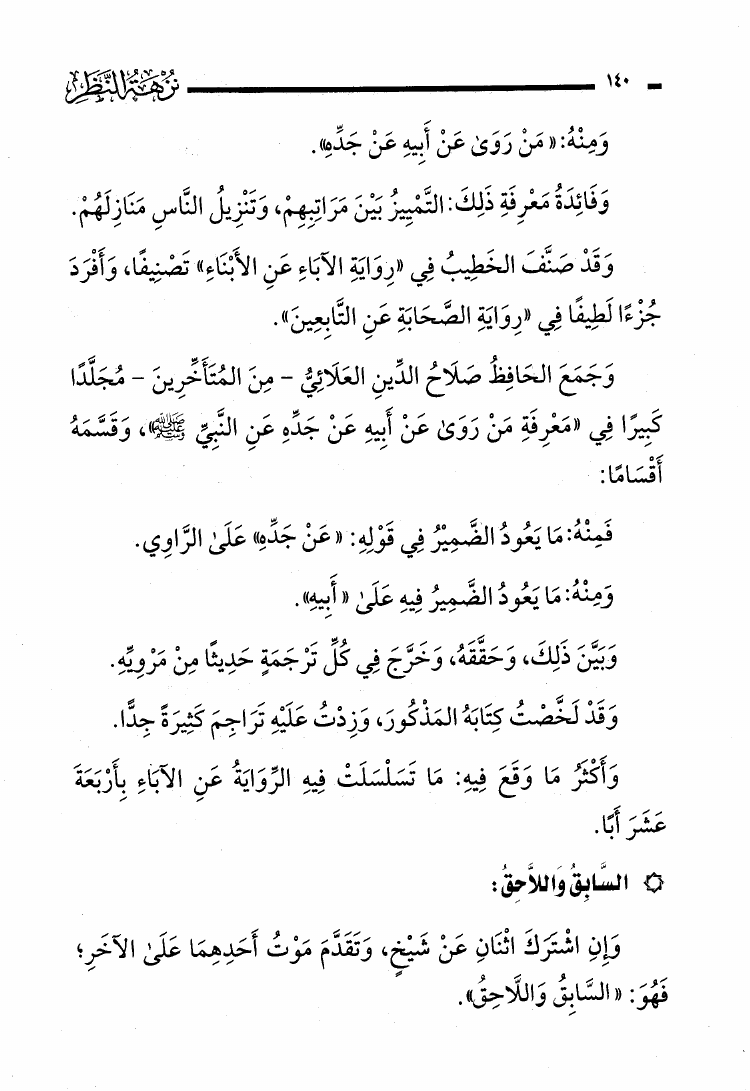 ١٤٠ نُزْهَةُ النَّظَرِ
وَمِنْهُ: «مَنْ رَوَىٰ عَنْ أَبِيهِ عَنْ جَدِّهِ».
وَفَائِدَةُ مَعْرِفَةِ ذَلِكَ: التَّمْيِيزُ بَيْنَ مَرَاتِبِهِمْ، وَتَنْزِيلُ النَّاسِ مَنَازِلَهُمْ.
وَقَدْ صَنَّفَ الخَطِيبُ فِي «رِوَايَةِ الآبَاءِ عَنِ الأَبْنَاءِ» تَصْنِيفًا، وَأَفْرَدَ
جُزْءًا لَطِيفًا فِي «رِوَايَةِ الصَّحَابَةِ عَنِ التَّابِعِينَ».
وَجَمَعَ الحَافِظُ صَلَاحُ الدِّينِ العَلَائِيُّ - مِنَ المُتَأَخِّرِينَ - مُجَلَّدًا
كَبِيرًا فِي «مَعْرِفَةِ مَنْ رَوَىٰ عَنْ أَبِيهِ عَنْ جَدِّهِ عَنِ النَّبِيِّ ﷺ»، وَقَسَّمَهُ
أَقْسَامًا:
فَمِنْهُ: مَا يَعُودُ الضَّمِيرُ فِي قَوْلِهِ: «عَنْ جَدِّهِ» عَلَىٰ الرَّاوِي.
وَمِنْهُ: مَا يَعُودُ الضَّمِيرُ فِيهِ عَلَىٰ «أَبِيهِ».
وَبَيَّنَ ذَلِكَ، وَحَقَّقَهُ، وَخَرَّجَ فِي كُلِّ تَرْجَمَةٍ حَدِيثًا مِنْ مَرْوِيِّهِ.
وَقَدْ لَخَّصْتُ كِتَابَهُ المَذْكُورَ، وَزِدْتُ عَلَيْهِ تَرَاجِمَ كَثِيرَةً جِدًّا.
وَأَكْثَرُ مَا وَقَعَ فِيهِ: مَا تَسَلْسَلَتْ فِيهِ الرِّوَايَةُ عَنِ الآبَاءِ بِأَرْبَعَةَ
عَشَرَ أَبًا.
۞ السَّابِقُ وَاللَّاحِقُ:
وَإِنِ اشْتَرَكَ اثْنَانِ عَنْ شَيْخٍ، وَتَقَدَّمَ مَوْتُ أَحَدِهِمَا عَلَىٰ الآخَرِ؛
فَهُوَ: «السَّابِقُ وَاللَّاحِقُ».